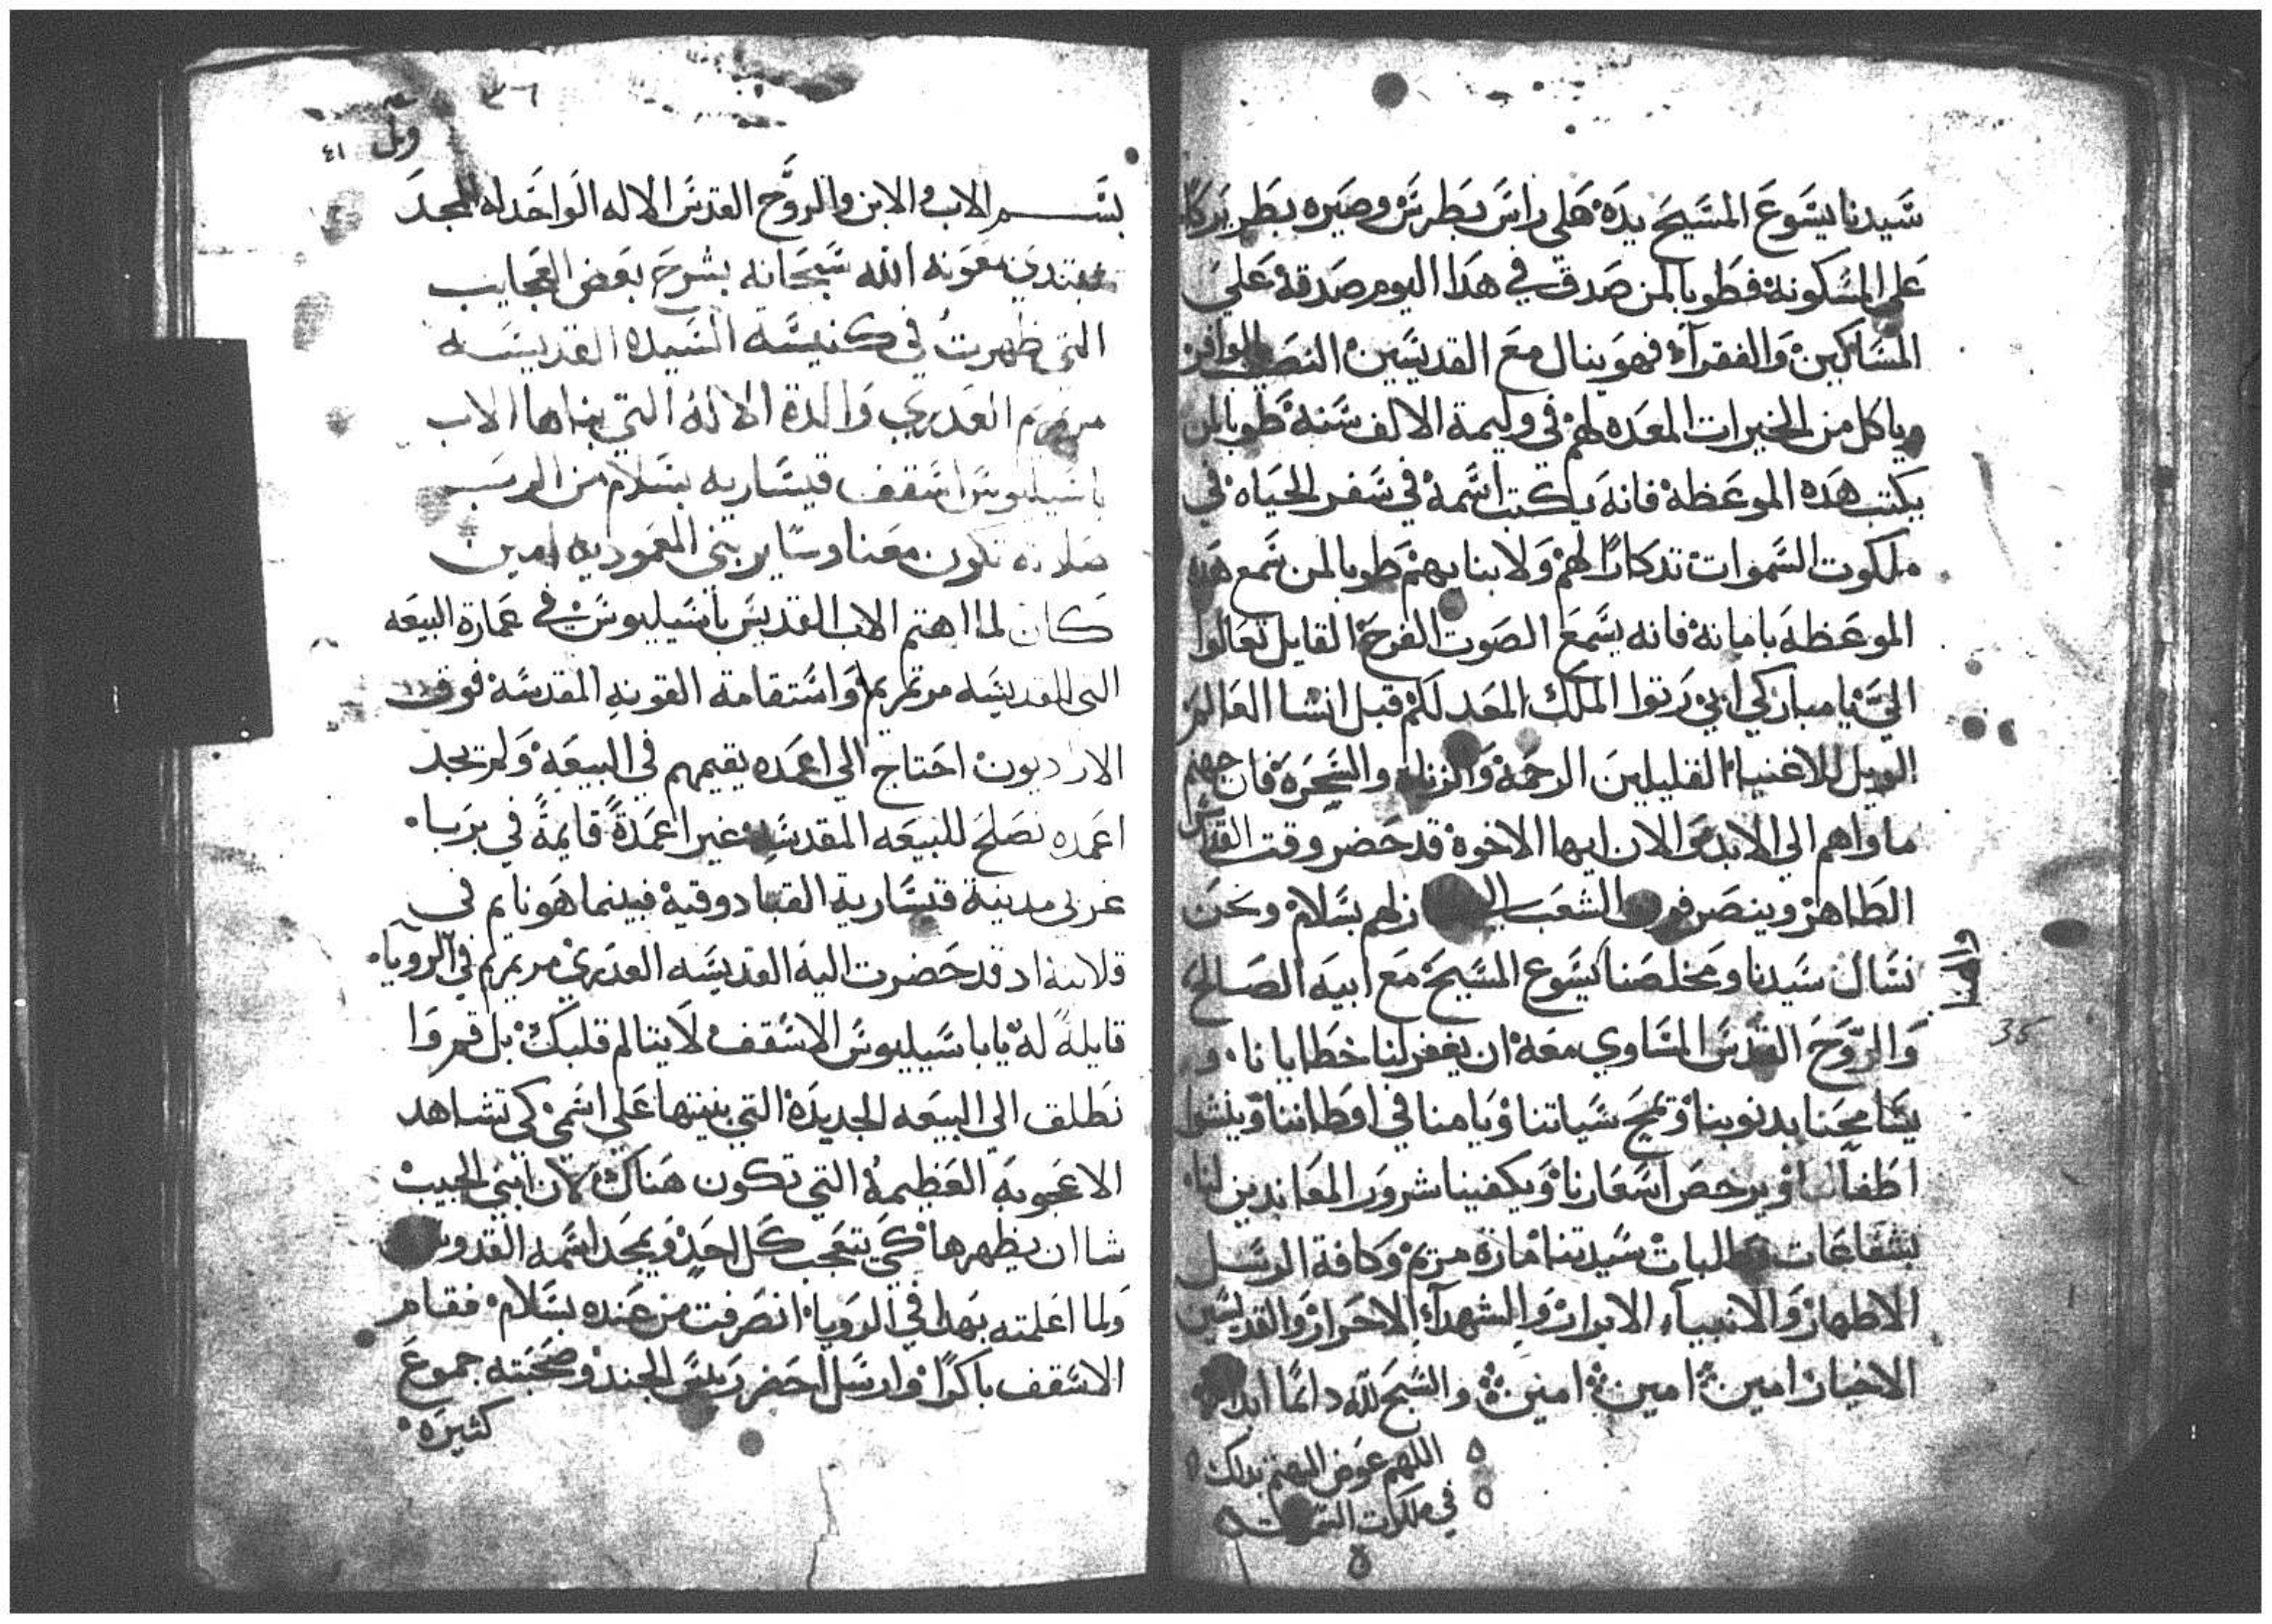 سيدنا يسوع المسيح يده علي راس بطرس وصيره بطريركا
علي المسكونة فطوبا لمن صدق في هدا اليوم صدقة علي
المساكين والفقرآء فهو ينال مع القديسين النصيب الوافر
وياكل من الخيرات المعده لهم في وليمة الالف سنة طوبا لمن
يكتب هده الموعظة فانه يكتب اسمه في سفر الحياه في
ملكوت السموات تدكارًا لهم ولابنايهم طوبا لمن سمع هده
الموعظه بامانة فانه يسمع الصوت الفرح القايل تعالوا
اليّ يا مباركي ابي رتوا الملك المعد لكم قبل انشا العالم
الويل للاغنياء القليلين الرحمة والزناه والسحرة فان جهنم
ماواهم الي الابد والان ايها الاخوة قد حضر وقت القداس
الطاهر وينصرفون الشعب الي زلهم بسلام ونحن
نسال سيدنا ومخلصنا يسوع المسيح مع ابيه الصالح
والروح القدس المساوي معه ان يغفر لنا خطايانا و
يسامحنا بدنوبنا ويمحي سياتنا ويامنا في اوطاننا وينشوا
اطفالنا ويرخص اسعارنا ويكفينا شرور المعاندين لنا
بشفاعات وطلبات سيدتنا مارة مريم وكافة الرسل
الاطهار والانبياء الابرار والشهدآء الاحرار والقديسين
الاخيار امين امين امين والسبح لله دايمًا ابدا
اللهم عوض المهتم بدلك
في ملكوت السموات
35
٣٦
وبل ٤١
بسم الاب والابن والروح القدس الاله الواحد له المجد
نبتدي بمعونة الله سبحانه بشرح بعض العجايب
التي ظهرت في كنيسة السيده القديسه
مرتمريم العدري والدة الاله التي بناها الاب
باسيليوس اسقف قيساريه بسلام من الرب
صلاته تكون معنا وساير بني المعموديه امين
كان لما اهتم الاب القديس باسيليوس في عمارة البيعه
التي للقديسه مرتمريم واستقامة القونه المقدسة فوق
الاراديون احتاج الي اعمده يقيمهم في البيعه ولم يجد
اعمده تصلح للبيعه المقدسه غير اعمدة قايمة في بربا
غربي مدينة قيسارية القبادوقية فبينما هو نايم في
قلايته اد قد حضرت اليه القديسه العدري مريم في الرويا
قايلة له يا باسيليوس الاسقف لا يتالم قلبك بل قم وا
نطلق الي البيعه الجديدة التي بنيتها علي اسمي كي تشاهد
الاعجوبه العظيمة التي تكون هناك لان ابني الحبيب
شا ان يظهرها كي يتعجب كل احد ويمجد اسمه القدوس
ولما اعلمته بهدا في الرويا انصرفت من عنده بسلام فقام
الاسقف باكرًا وارسل احضر ريس الجند وصحبته جموع
كثيره